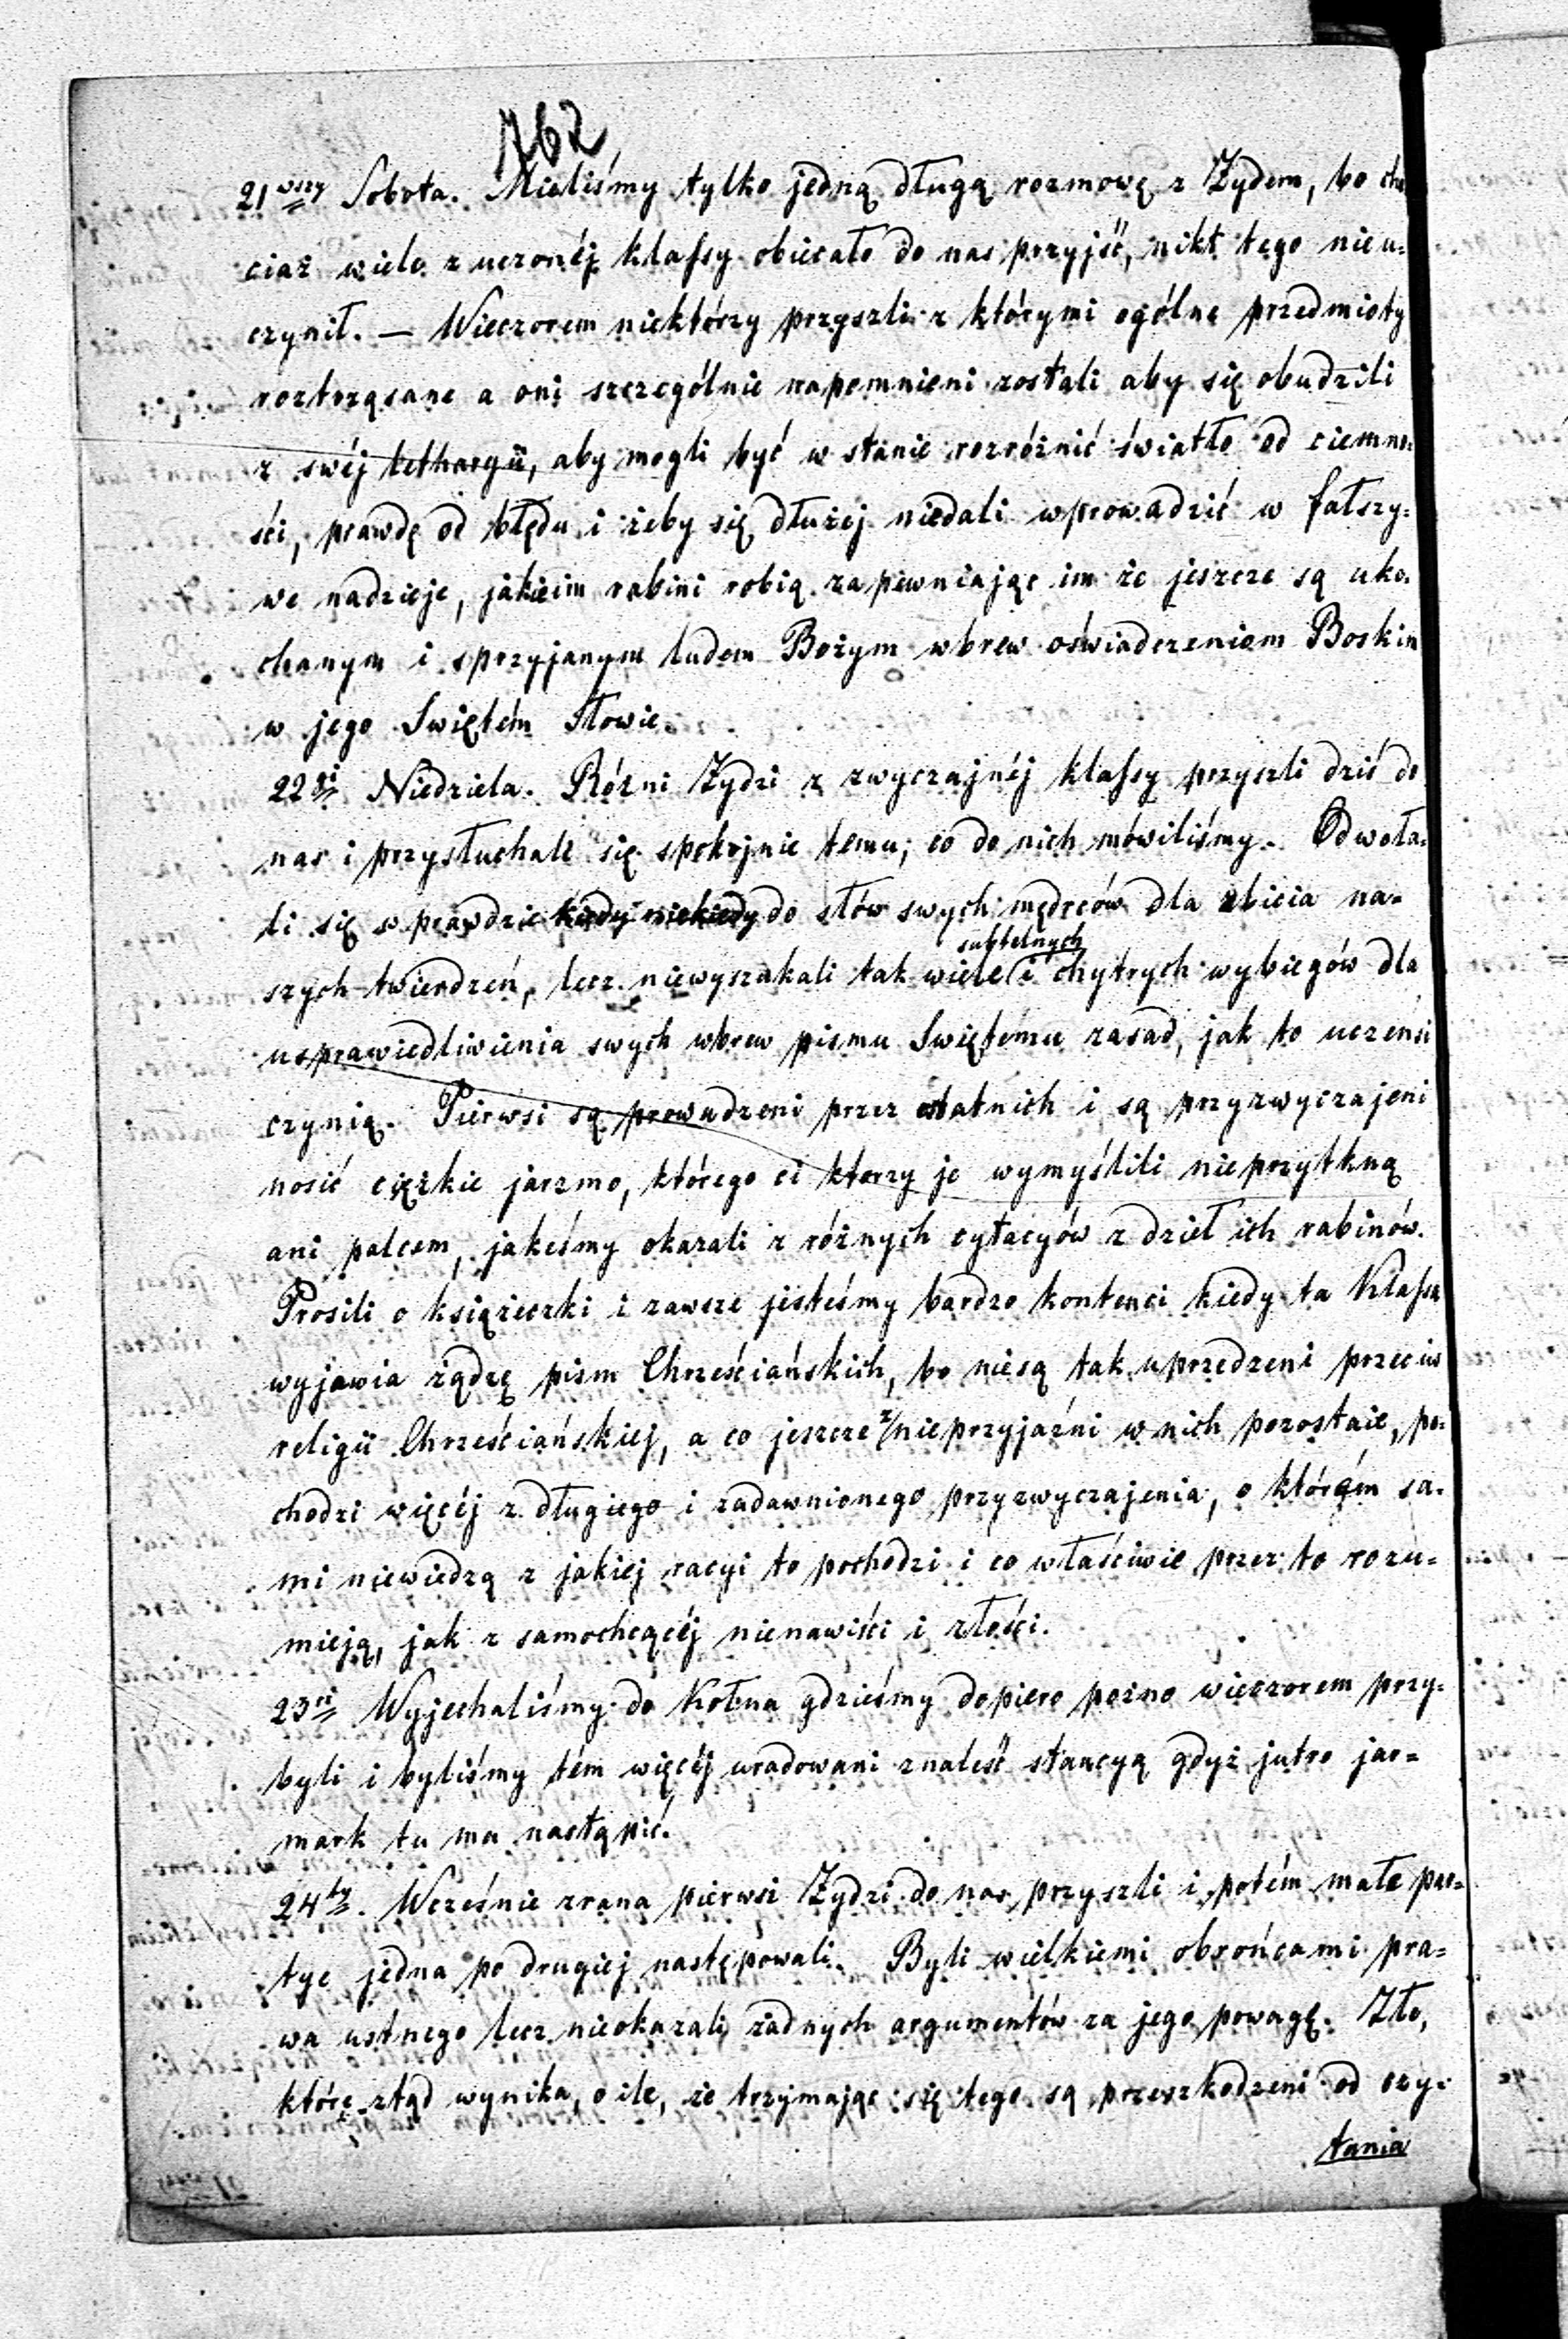 762
21wszy Sobota. Mieliśmy tylko jedną długą rozmowę z Żydem, bo cho
ciaż wiele z uczonéj klassy obiecało do nas przyjść, nikt tego nieu-
czynił. — Wieczorem niektórzy przyszli z którymi ogólne przedmioty
roztrząsane a oni szczególnie napomnieni zostali aby się obudzili
z swéj lethargii, aby mogli być w stanie rozróżnić światło od ciemno-
ści, prawdę od błędu i żeby się dłużej niedali wprowadzić w fałszy-
we nadzieje, jakie im rabini robią zapewniając im że jeszcze są uko-
chanym i sprzyjanym ludem Bożym wbrew oświadczeniom Boskim
w jego Świętém Słowie.
22gi Niedziela. Różni Żydzi z zwyczajnéj klassy przyszli dziś do
nas i przysłuchali się spokojnie temu, co do nich mówiliśmy. Odwoła-
li się w prawdzie kiedy niekiedy do słów swych mędrców dla zbicia na-
szych twierdzeń, lecz niewyszukali tak wiele subtelnych i chytrych wybiegów dla
usprawiedliwienia swych wbrew pismu Świętemu zasad, jak to uczeńsi
czynią. Pierwsi są prowadzeni przez ostatnich i są przyzwyczajeni
nosić ciężkie jarzmo, którego ci którzy je wymyślili nieprzytkną
ani palcem, jakeśmy okazali z różnych cytacyów z dzieł ich rabinów.
Prosili o książeczki i zawsze jesteśmy bardzo kontenci kiedy ta Klassa
wyjawia żądzę pism Chrześciańskich, bo niesą tak uprzedzeni przeciw
religii Chrześciańskiej, a co jeszcze z nieprzyjaźni w nich pozostaie, po-
chodzi więcéj z długiego i zadawnionego przyzwyczajenia, o którém sa-
mi niewiedzą z jakiéj racyi to pochodzi i co właściwie przez to rozu-
mieją, jak z samochcącéj nienawiści i złości.
23ci Wyjechaliśmy do Kolna gdzieśmy dopiero pożno wieczorem przy-
byli i byliśmy tém więcéj uradowani znaleść stancyą gdyż jutro jar-
mark tu ma nastąpić.
24ty. Wcześnie zrana pierwsi Żydzi do nas przyszli i potém małe par-
tye jedna po drugiej następowali. Byli wielkiemi obrońcami pra-
wa ustnego lecz nieokazali żadnych argumentów za jego powagę. Zło,
które ztąd wynika, o ile, że trzymając się tego są przeszkodzeni od czy-
tania